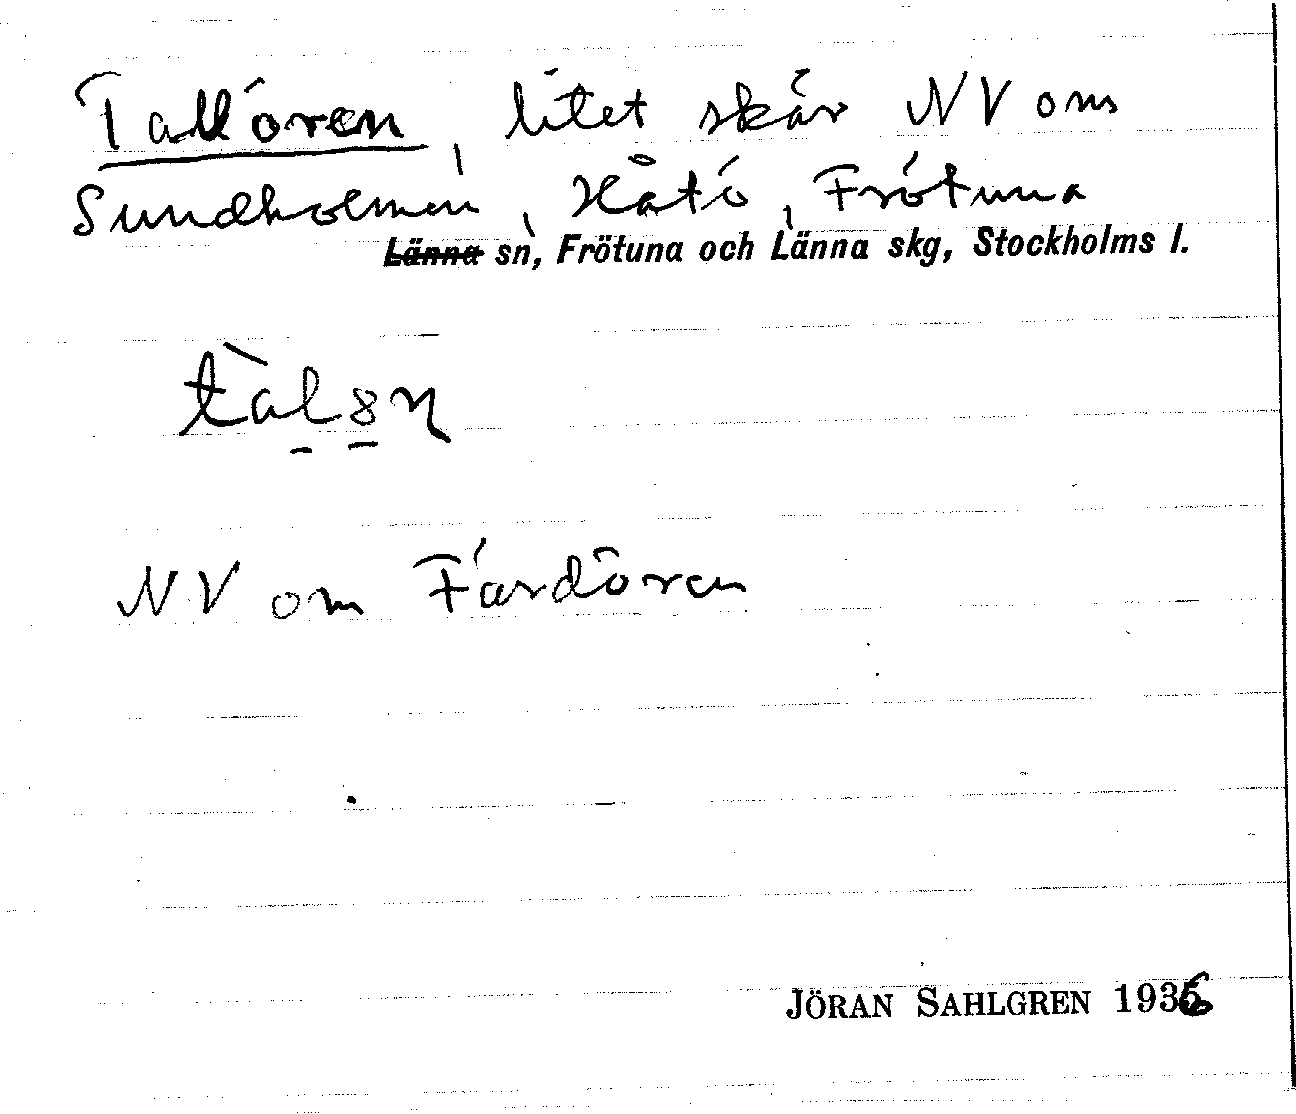 Tallören, litet skär NV om
Sundholmen, Håtö, Frötuna
Länna sn, Frötuna och Länna skg, Stockholms l.
NV om Fårdören
JÖRAN SAHLGREN 1936